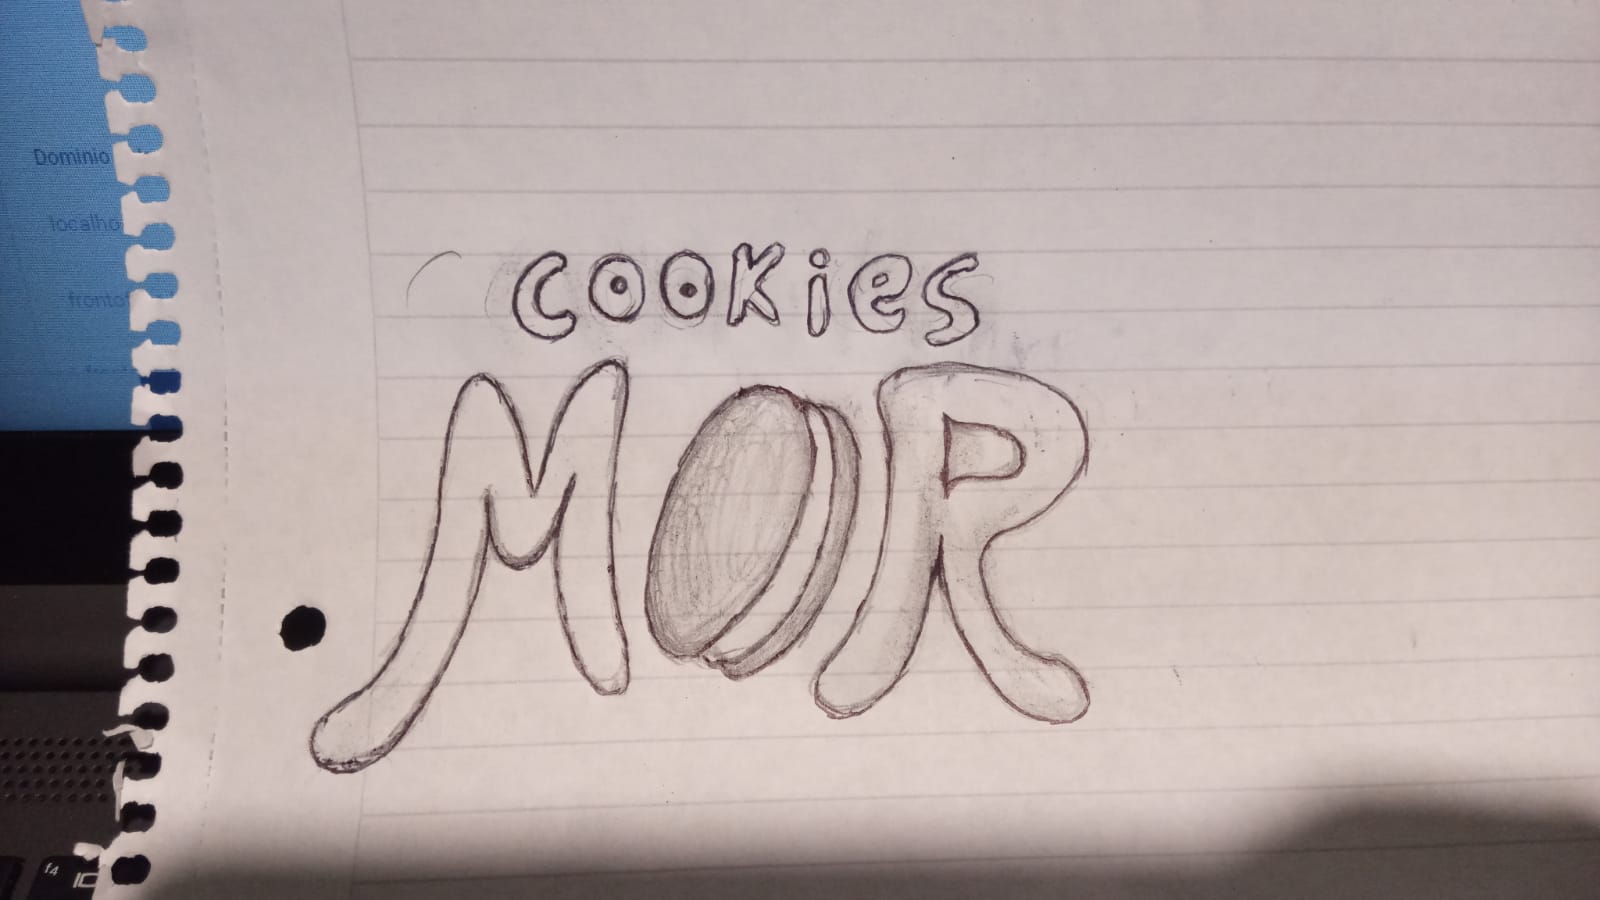 Dominio
localho
fronto
cookies
MOR
f4